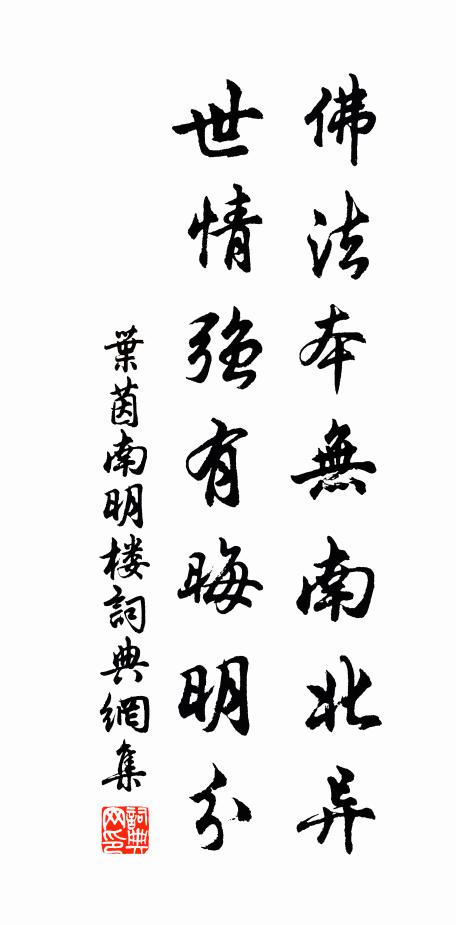 佛法本無南北异
世情強有晦明分
葉茵南明楼詞典網集
詞典網印